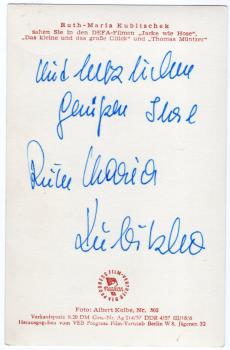 Ruth-Maria Kubitschek
sahen Sie in den DEFA-Filmen „Jacke wie Hose",
„Das kleine und das große Glück" und „Thomas Müntzer"
Mit herzlichen
Grüßen Ihre
Ruth Maria
Kubitschek
PROGRESS FILM-VERTRIEB
Foto: Albert Kolbe, Nr. 502
Verkaufspreis 0,20 DM Gen.-Nr. Ag 214/57 DDR 4/57 III/18/6
Herausgegeben vom VEB Progress Film-Vertrieb Berlin W 8, Jägerstr. 32